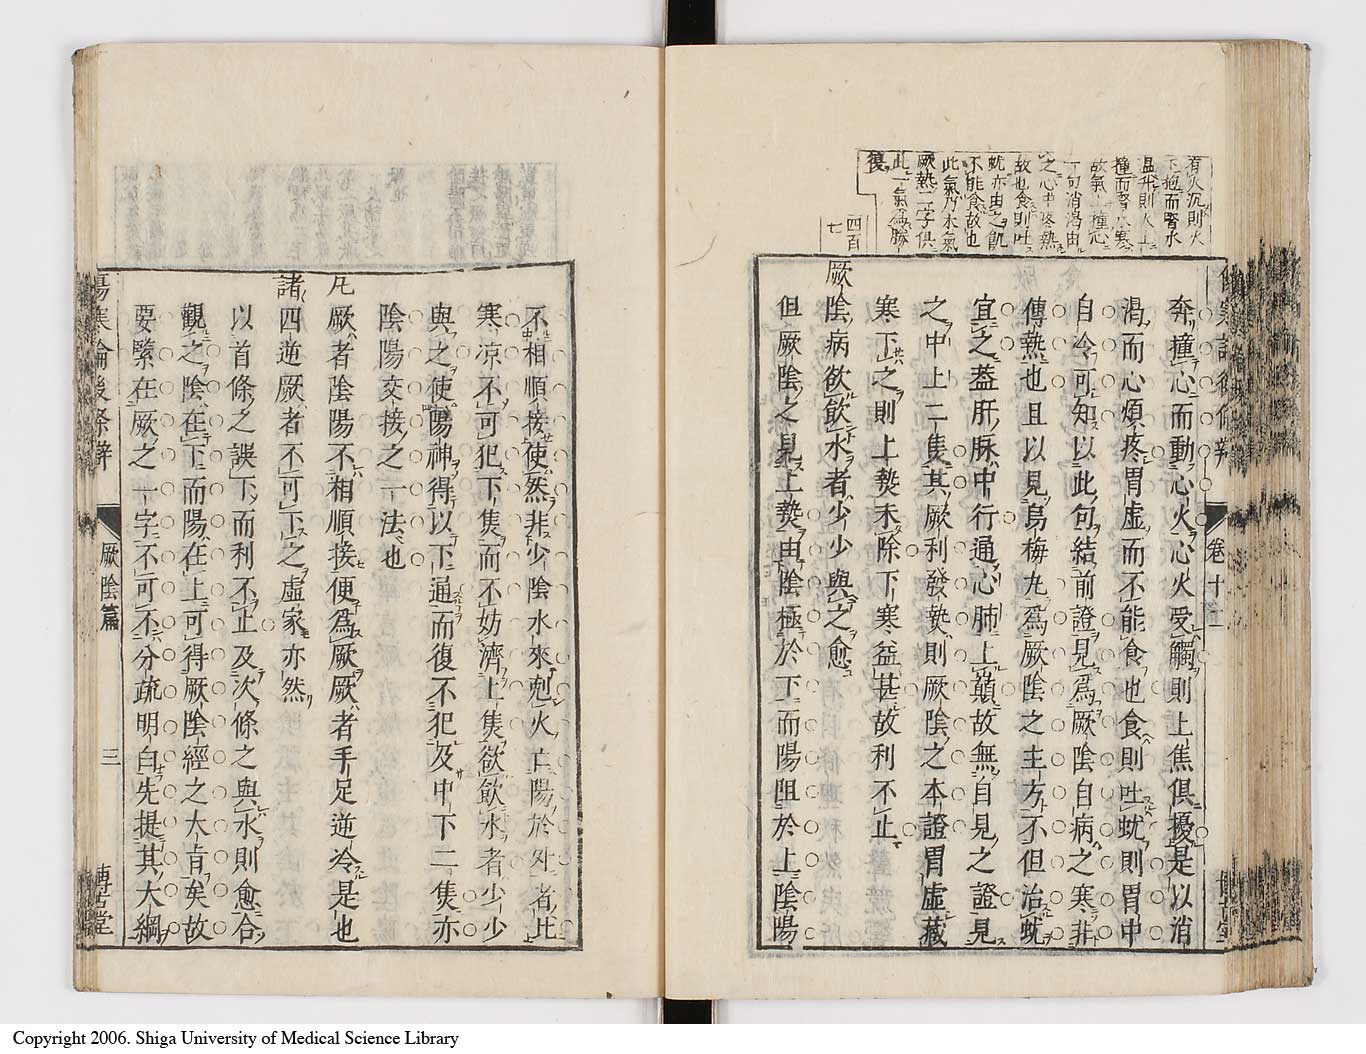 有火沉則火
下逼而腎水
溫升則火上
撞而腎水寒
故氣上撞心
一句消渴由
之心中疼熱
故也食則吐
蚘亦由之飢
不能食故也
此氣乃水氣
厥熱二字俱
此一氣爲勝
復
四百
七
奔撞心而動心火心火受觸則上焦俱擾是以消
渴而心煩疼胃虛而不能食也食則吐蚘則胃中
自冷可知以此句結前證見爲厥陰自病之寒非
傳熱也且以見烏梅丸爲厥陰之主方不但治蚘
宜之葢肝脉中行通心肺上巔故無自見之證見
之中上二焦其厥利發熱則厥陰之本證胃虛藏
寒下之則上熱未除下寒益甚故利不止
厥陰病欲飮水者少少與之愈
但厥陰之見上熱由陰極於下而陽阻於上陰陽
卷十二
不相順接使然非少陰水來剋火亡陽於外者比
寒凉不可犯下焦而不妨濟上焦欲飮水者少少
與之使陽神得以下通而復不犯及中下二焦亦
陰陽交接之一法也
凡厥者陰陽不相順接便爲厥厥者手足逆冷是也
諸四逆厥者不可下之虛家亦然
以首條之誤下而利不止及次條之與水則愈合
觀之陰在下而陽在上可得厥陰經之大旨矣故
要緊在厥之一字不可不分疏明白先提其大綱
傷寒論後條辨
厥陰篇
三
博古堂